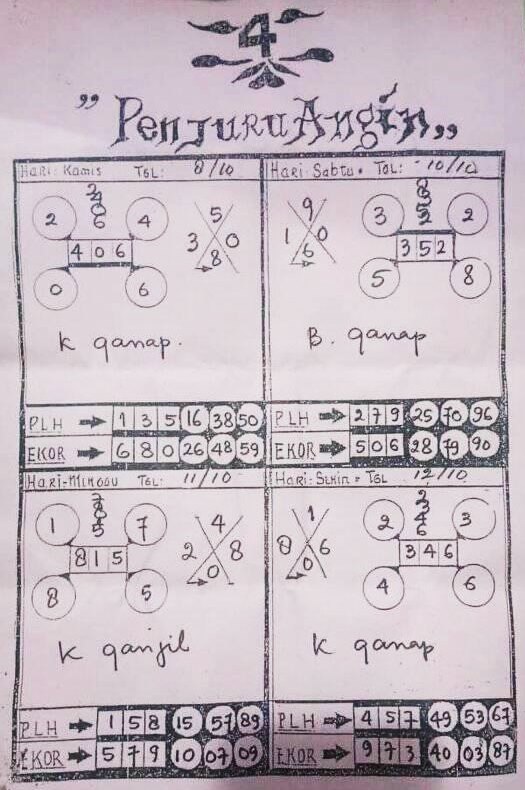 4
"Penjuru Angin"
Hari: Kamis TGL: 8/10
2 4 0 6
2 4
4 0 6
0 6
5
3 0
8
K ganap.
PLH 1 3 5 16 38 50
EKOR 6 8 0 26 48 59
Hari: Sabtu TGL: 10/10
3 2
3 5 2
5 8
9
1 0
6
B. ganap
PLH 2 7 9 25 70 96
EKOR 5 0 6 28 79 90
Hari-MINGGU TGL: 11/10
1 7
8 1 5
8 5
4
2 8
0
K ganjil
PLH 1 5 8 15 57 89
EKOR 5 7 9 10 07 09
Hari: SENIN TGL 12/10
2 3 4 6
2 3
3 4 6
4 6
1
8 6
0
K ganap
PLH 4 5 7 49 53 67
EKOR 9 7 3 40 03 87